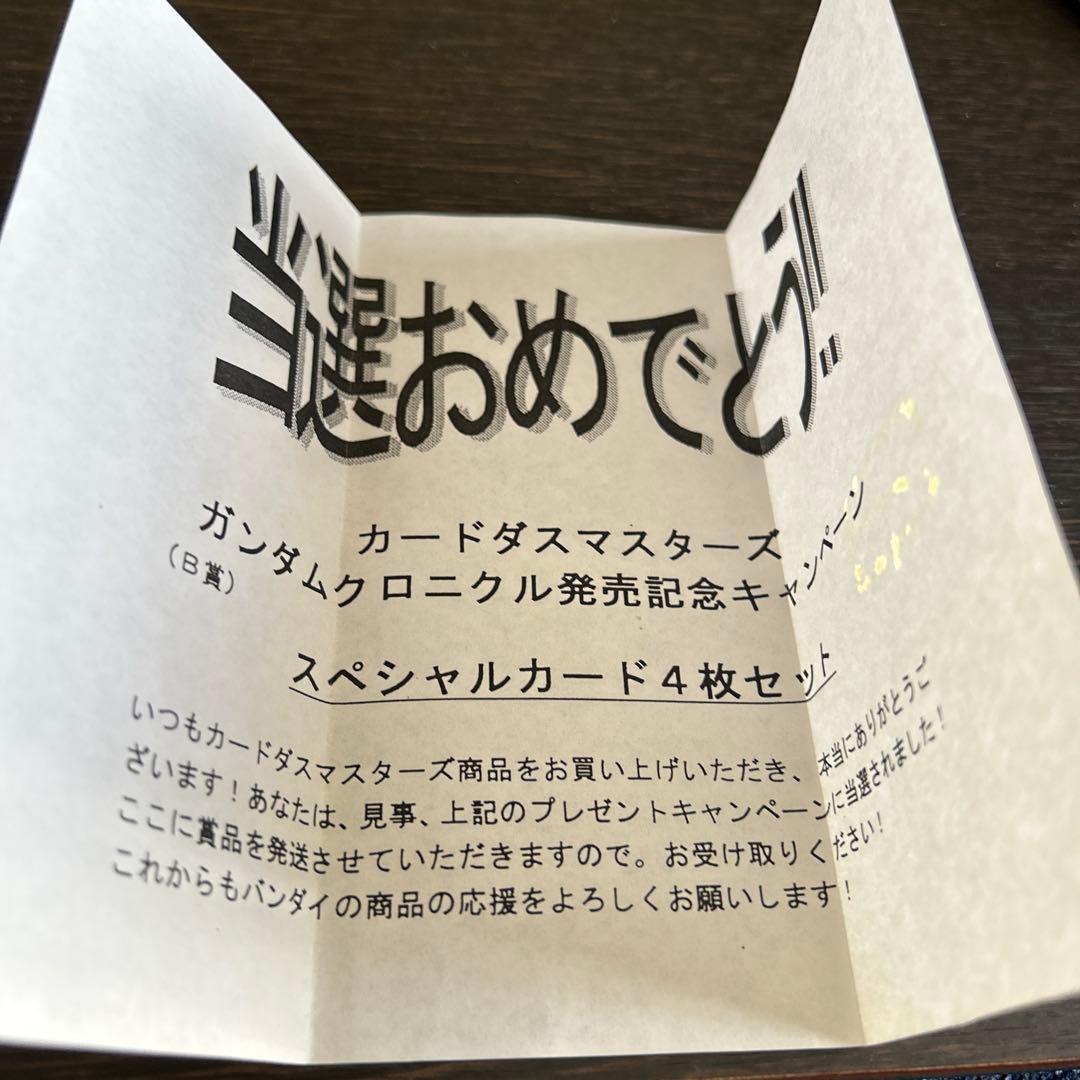 当選おめでとう!!
カードダスマスターズ
ガンダムクロニクル発売記念キャンペーン
(B賞)
スペシャルカード4枚セット
いつもカードダスマスターズ商品をお買い上げいただき、本当にありがとうご
ざいます!あなたは、見事、上記のプレゼントキャンペーンに当選されました!
ここに賞品を発送させていただきますので。お受け取りください!
これからもバンダイの商品の応援をよろしくお願いします!